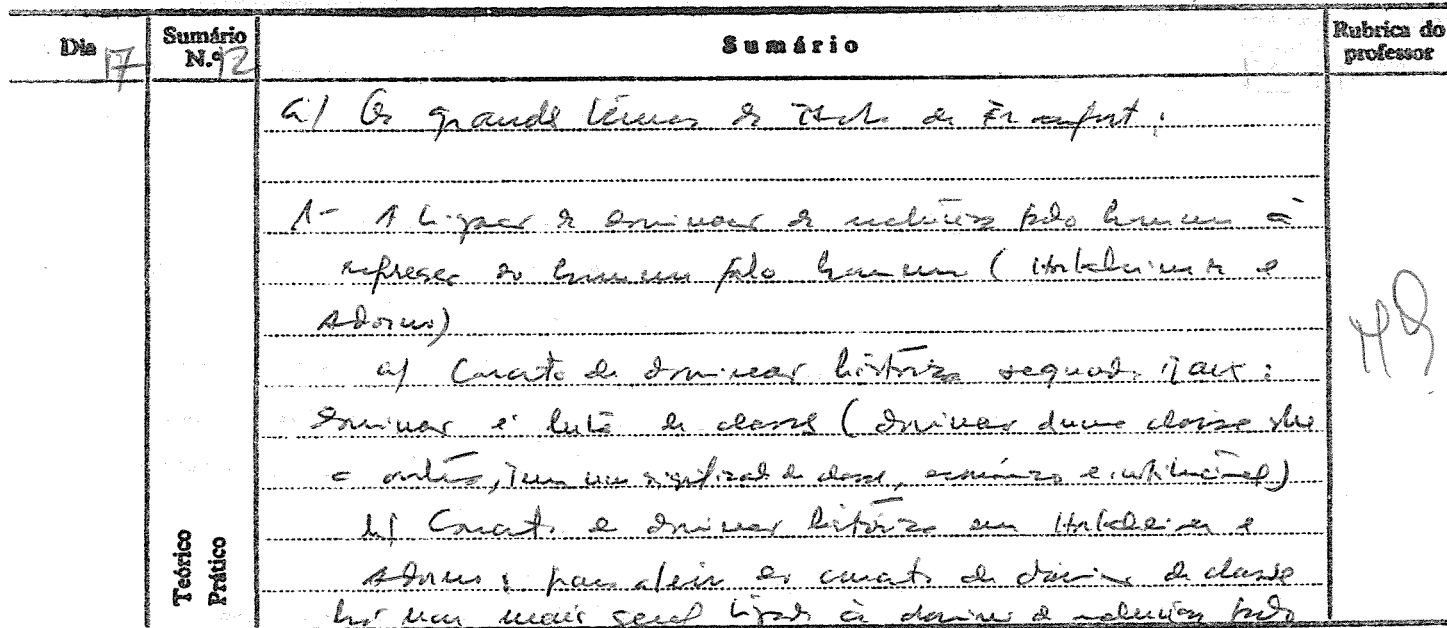 Dia 17
Sumário N.º 12
Sumário
Rubrica do professor
a) Os grande temas da Escola de Francfort:
1- A ligação da dominação da natureza pelo homem à
repressão do homem pelo homem (Horkheimer e
Adorno)
a) Conceito de dominação histórica segundo Marx:
dominação é luta de classe (dominação duma classe sobre
a outra, tem um significado de classe, económico e institucional)
b) Conceito de dominação histórica em Horkheimer e
Adorno: para além do conceito de domínio de classe
há um mais geral ligado à domínio da natureza pelo
Teórico
Prático